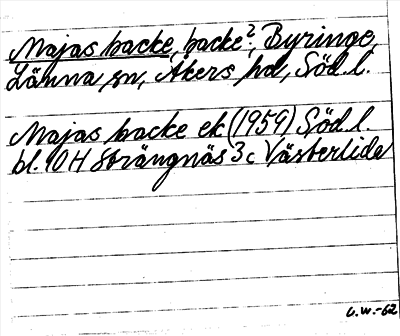 Majas backe, backe?, Byringe,
Länna sn, Åkers hd, Söd. l.
Majas backe ek (1959) Söd. l.
bl. 10H Strängnäs 3c Västerlida
G.W.-62